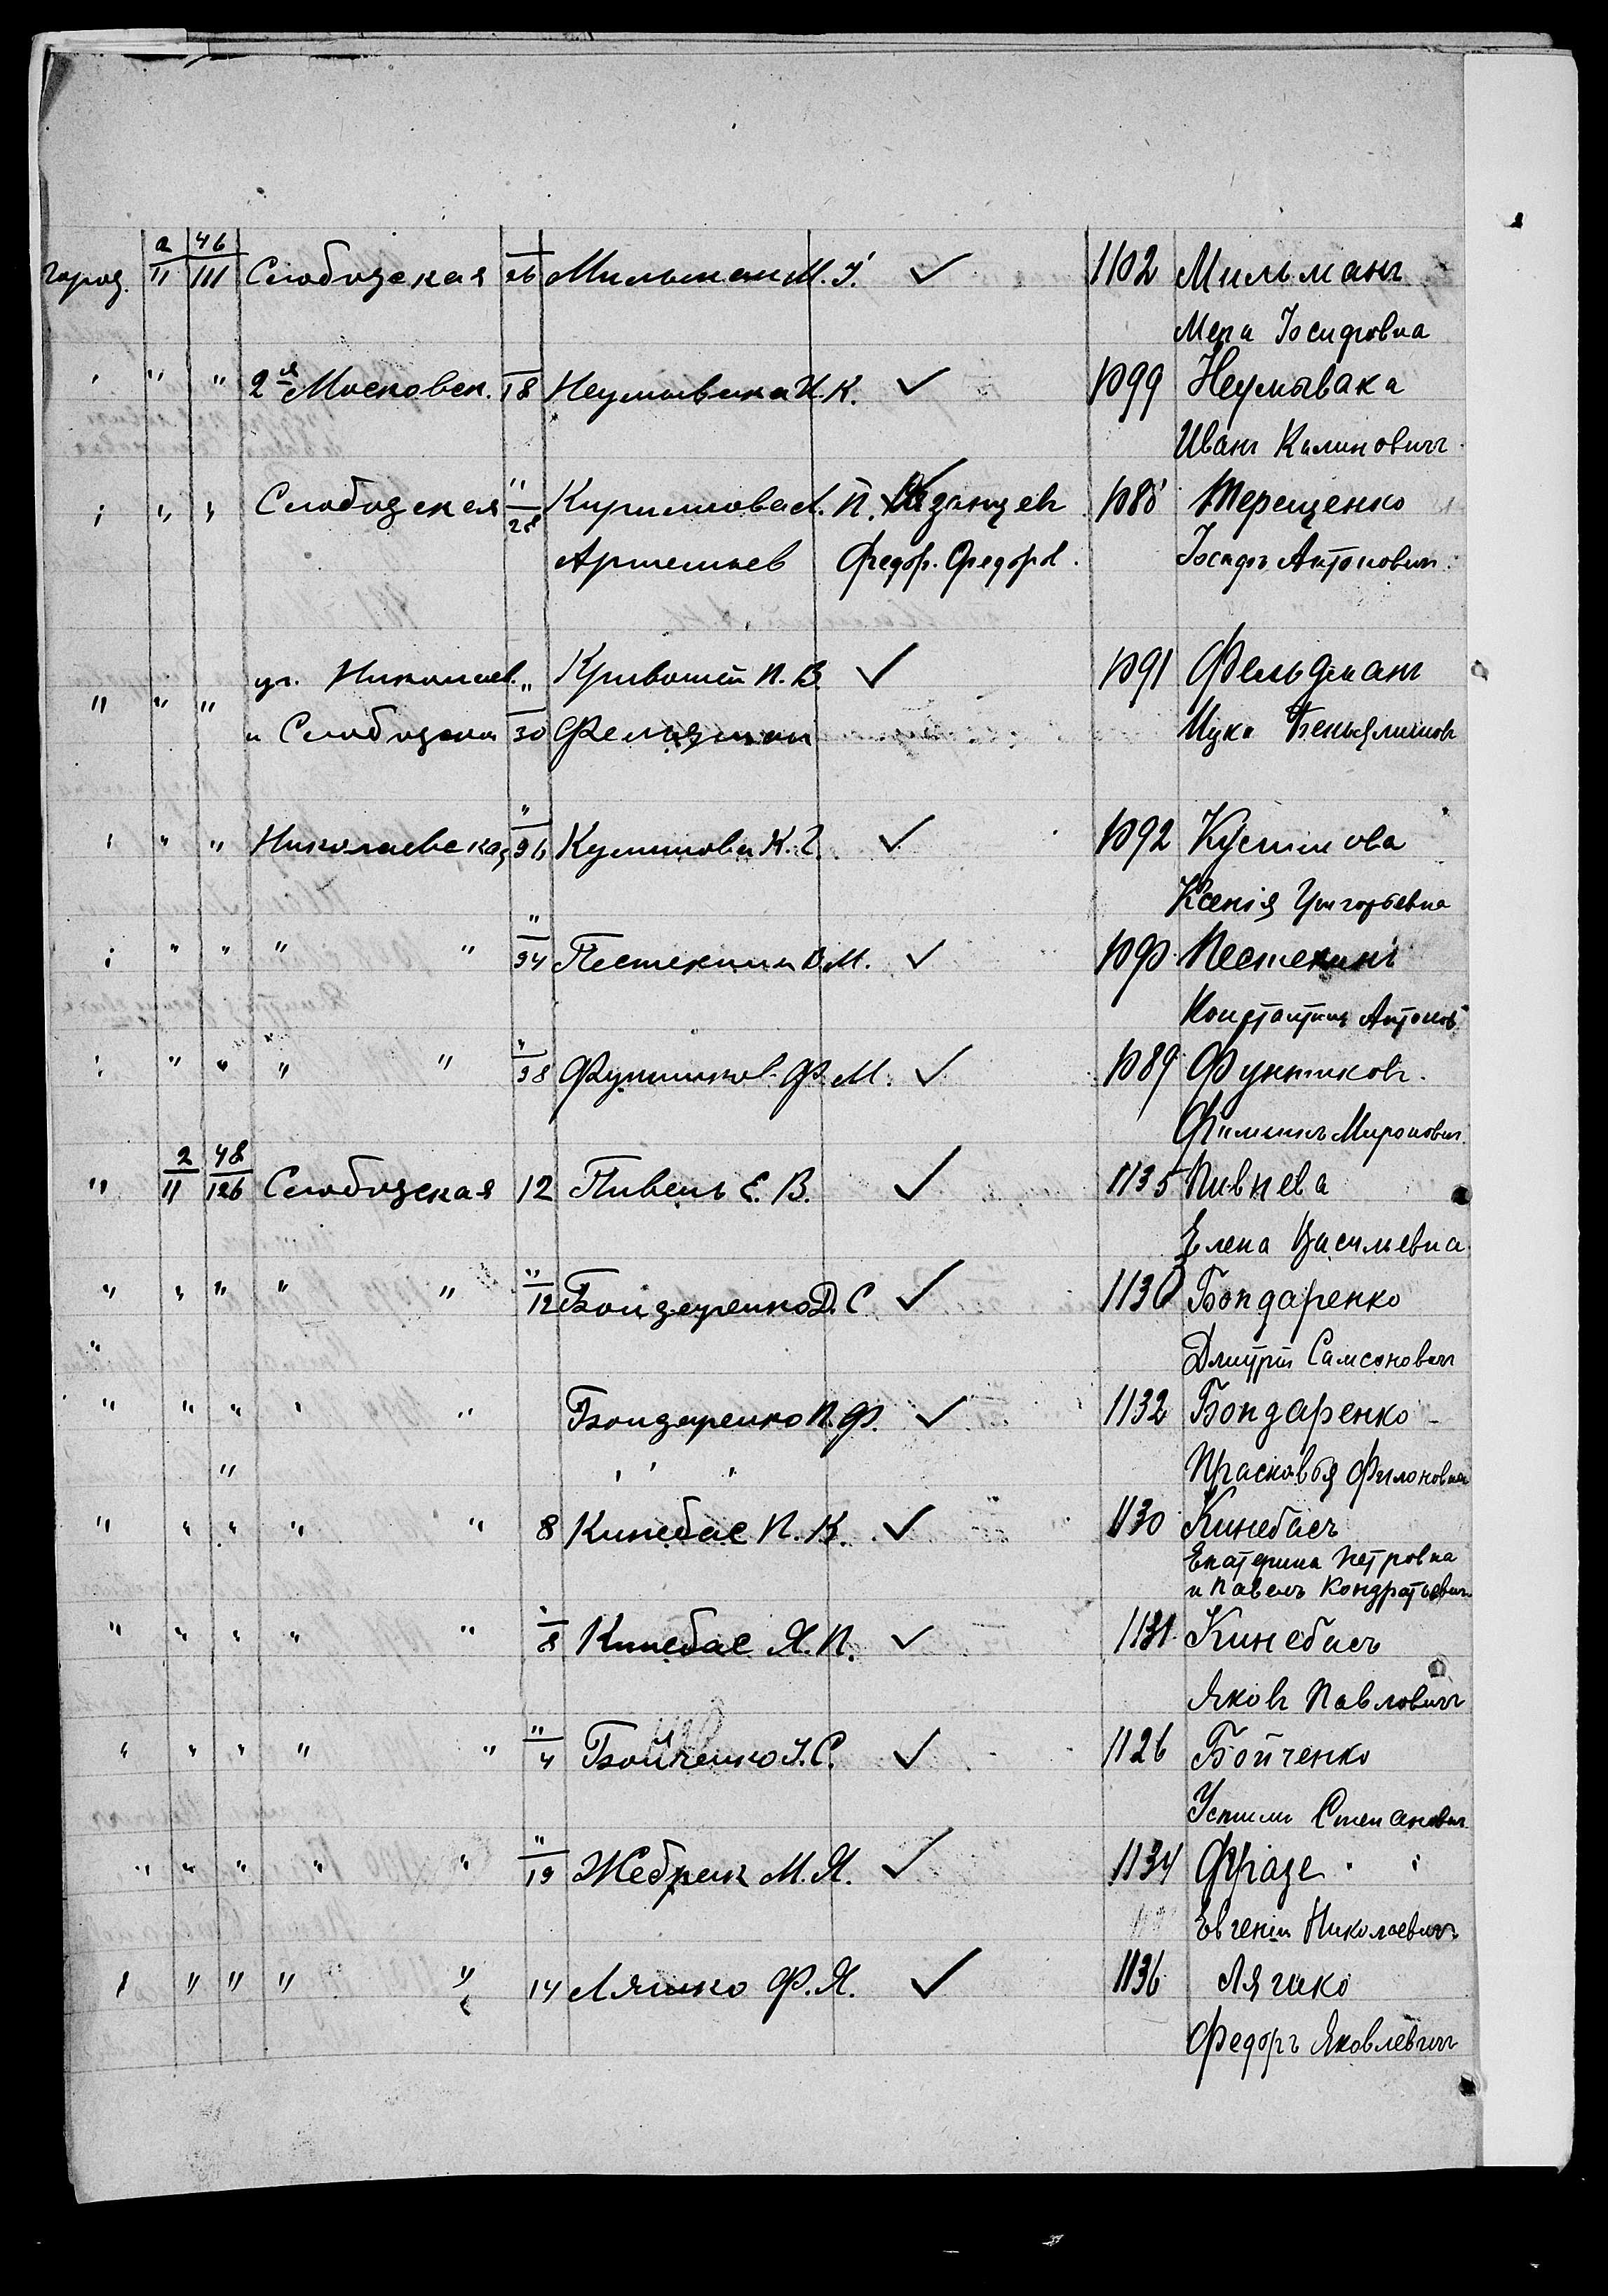 2 46
город. II III Слободская 26 Мильман М. І. ✓ 1102 Мильманъ
Мера Іосифовна
" " " 2я Московск. 18 Неумывака И. К. ✓ 1099 Неумывака
Иванъ Калиновичъ
" " " Слободская "/28 Кириллова А. П. Казанцевъ 1088 Терещенко
Артемьев Федор. Федоров. Іосифъ Антонович.
уг. Николаев. " Кривошей П. В. ✓ 1091 Фельдманъ
" " "
и Слободской 30 Фельдман Ицко Беньяминов
" " " Николаевская "/36 Кустова К. Г. ✓ 1092
Ксенія Григорьевна
" " " " " "/34 Пестекина В. М. ✓ 1090 Пестекинъ
Константинъ Антонов
" " " " " "/38 Фунтиков Ф. М. ✓ 1089 Фунтиковъ.
Филиппъ Миронович
2 48
" II 126 Слободская 12 Пивень Е. В. ✓ 1135 Пивнева
Елена Васильевна
" " " " " "/12 Бондаренко Д. С ✓ 1130 Бондаренко
" Дмитрій Самсонович
" " " " " Бондаренко П. Ф. ✓ 1132 Бондаренко
" " " " Прасковья Филоновна
" " " " " 8 Кинебас П. К. ✓ 1130 Кинебасъ
Екатерина Петровна
и Павелъ Кондратьевич
" " " " " "/8 Кинебас Я. П. ✓ 1131 Кинебасъ
Яковъ Павловичъ
" " " " " "/4 Бойченко У. С. ✓ 1126 Бойченко
Устимъ Степанович
" " " " " "/19 Жебрак М. Я. ✓ 1134 Фразе
Евгеній Николаевичъ
" " " " " 14 Ляшко Ф. Я. ✓ 1136 Ляшко
Федоръ Яковлевичъ